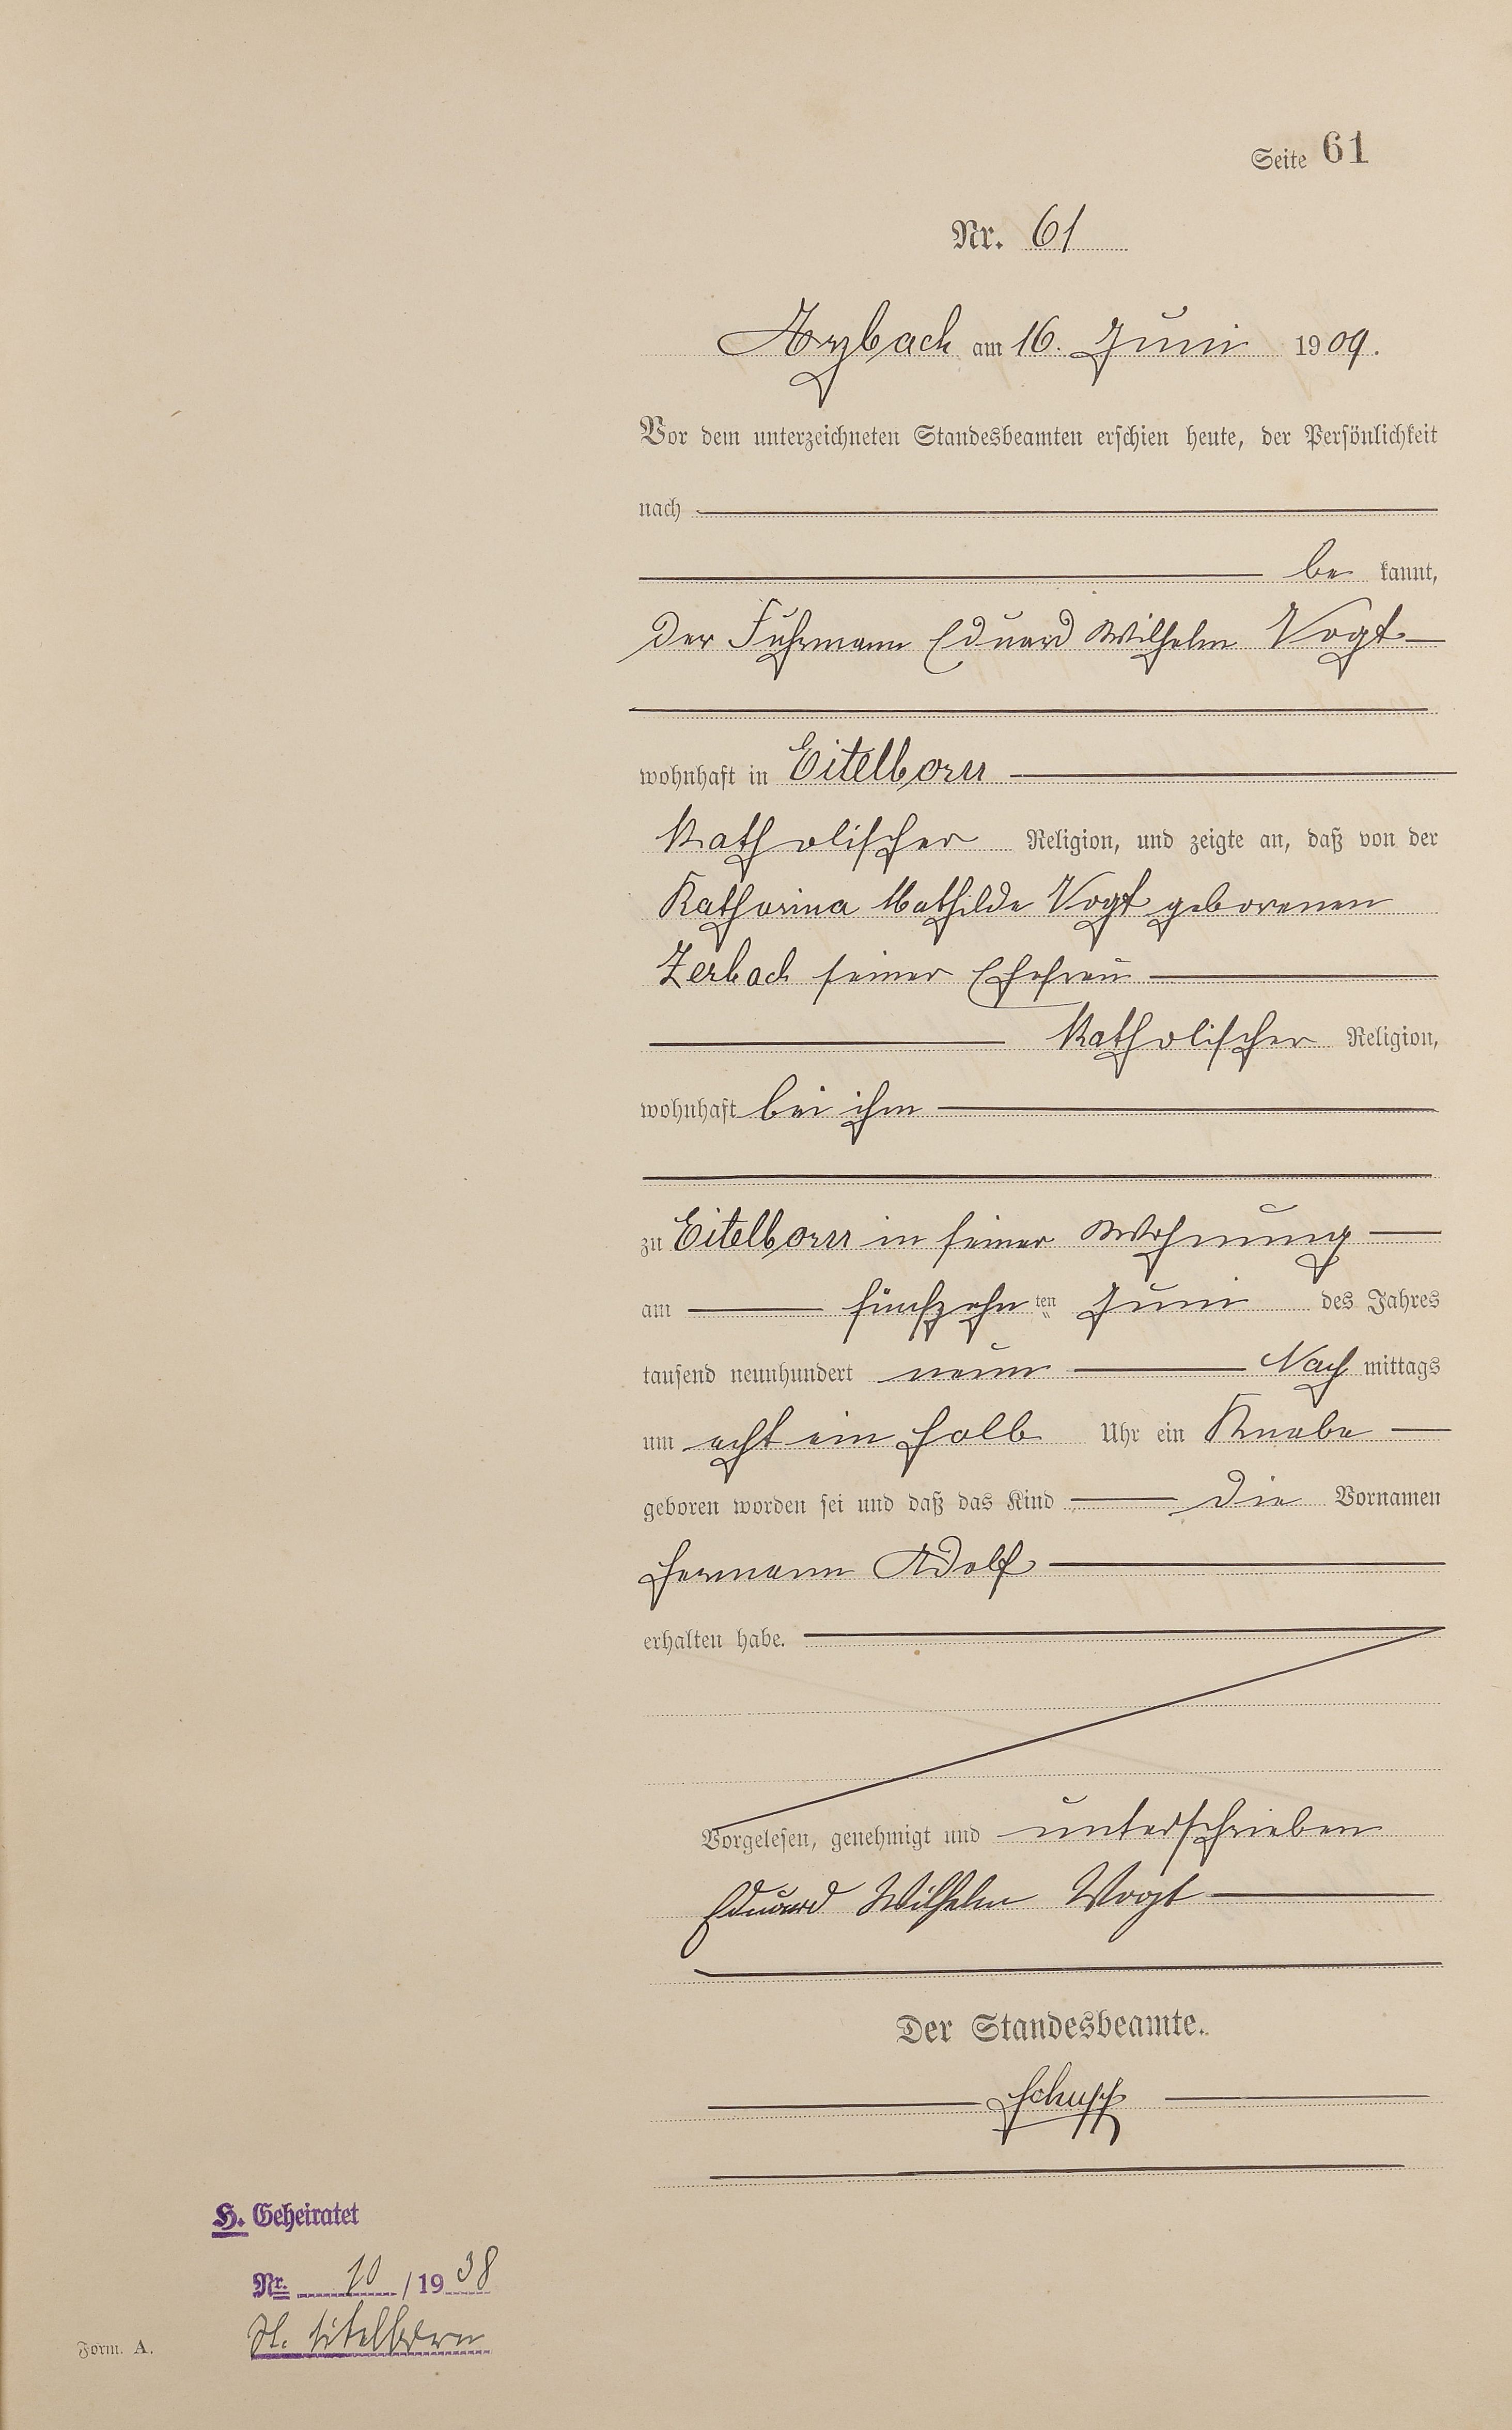 Seite 61
Nr. 61
Arzbach am 16. Juni 1909.
Vor dem unterzeichneten Standesbeamten erschien heute, der Persönlichkeit
nach
be kannt,
der Fuhrmann Eduard Wilhelm Vogt
wohnhaft in Eitelborn
katholischer Religion, und zeigte an, daß von der
Katharina Mathilde Vogt geborenen
Zerbach seiner Ehefrau
katholischer Religion,
wohnhaft bei ihm
zu Eitelborn in seiner Wohnung
am fünfzehn ten Juni des Jahres
tausend neunhundert neun Nach mittags
um acht ein halb Uhr ein Knabe
geboren worden sei und daß das Kind die Vornamen
Hermann Adolf
erhalten habe.
Vorgelesen, genehmigt und unterschrieben
Eduard Wilhelm Vogt
Der Standesbeamte.
H. Geheiratet
Nr. 10 /1938
St. Eitelborn
Form. A.